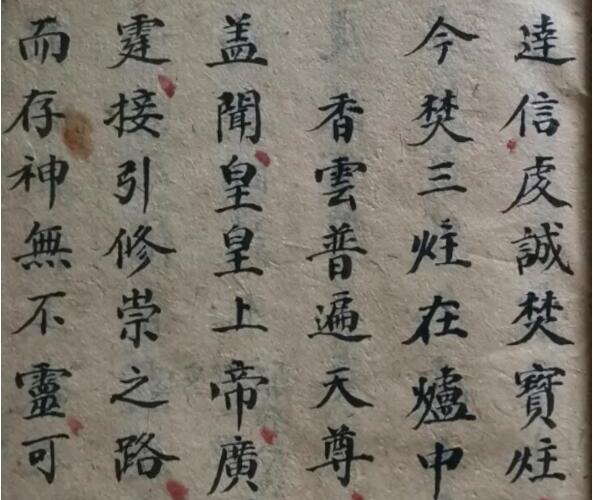 逹信䖍誠焚寶炷
今焚三炷在爐中
香雲普遍天尊
盖聞皇皇上帝廣
霆接引修崇之路
而存神無不靈可